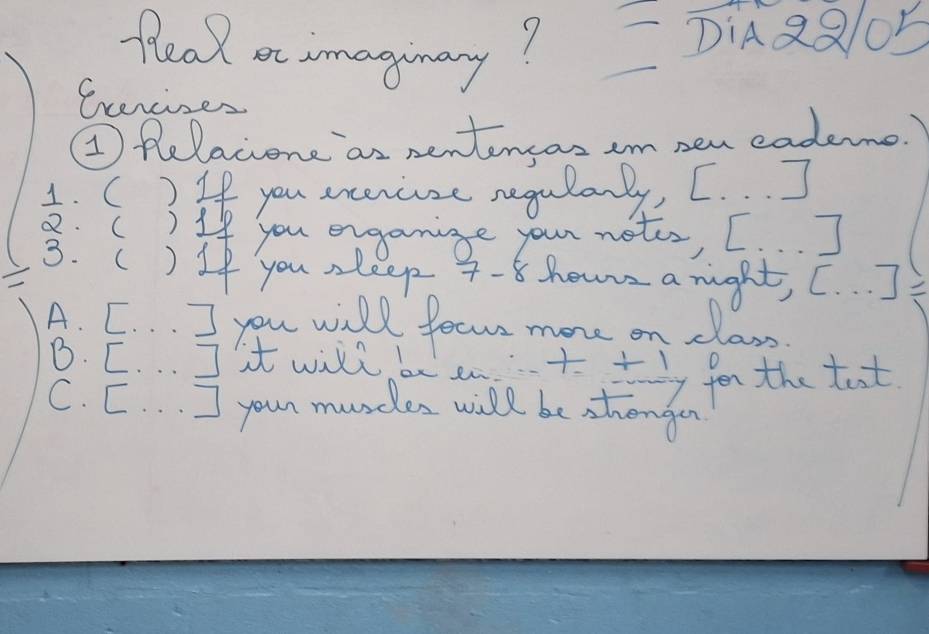 Real or imaginary?
DiA 22/05
Exercises
① Relacione às sentenças em seu caderno.
1. ( ) If you exercise regularly, [...]
2. ( ) If you organize your notes, [...]
3. ( ) If you sleep 7-8 hours a night, [...]
A. [...] you will focus more on class.
B. [...] it will be for the test.
C. [...] your muscles will be stronger.